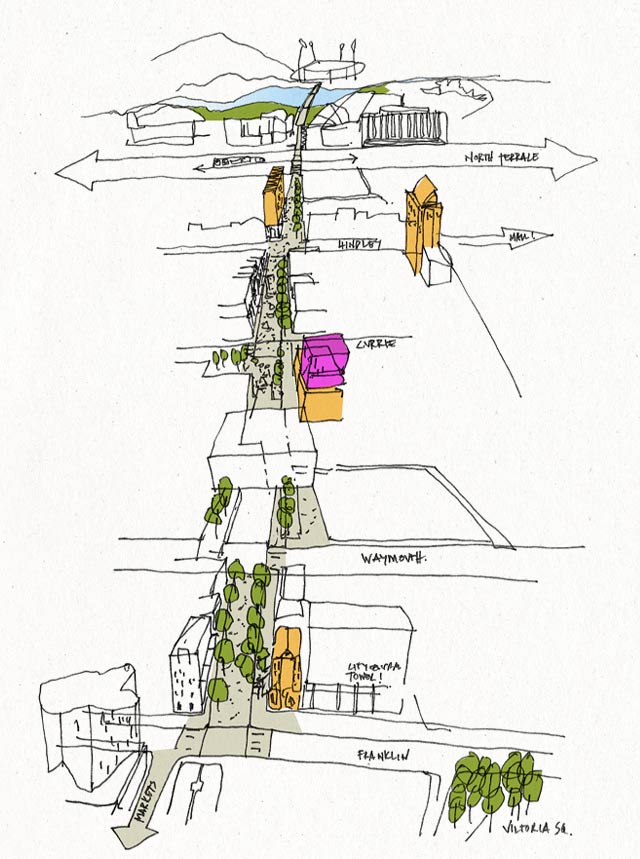 NORTH TERRALE
HINDLEY
MALL!
CURRIE
WAYMOUTH.
CITY CENTRAL
TOWER!
FRANKLIN
MARKETS
VICTORIA SQ.